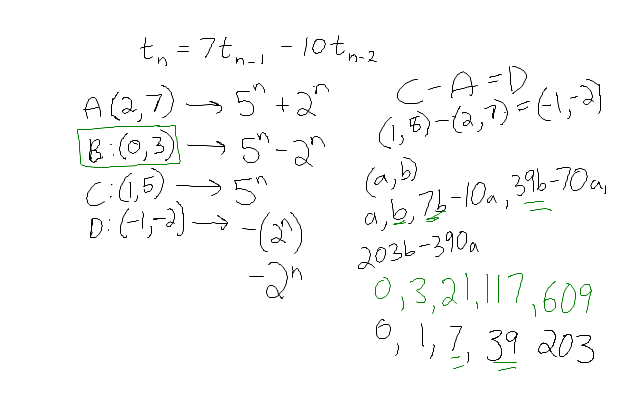 tₙ = 7tₙ₋₁ - 10tₙ₋₂
A(2,7) → 5ⁿ + 2ⁿ
B:(0,3) → 5ⁿ - 2ⁿ
C:(1,5) → 5ⁿ
D:(-1,-2) → -(2ⁿ)
-2ⁿ
C - A = D
(1,5) - (2,7) = (-1,-2)
(a,b)
a, b, 7b - 10a, 39b - 70a,
203b - 390a
0, 3, 21, 117, 609
0, 1, 7, 39 203